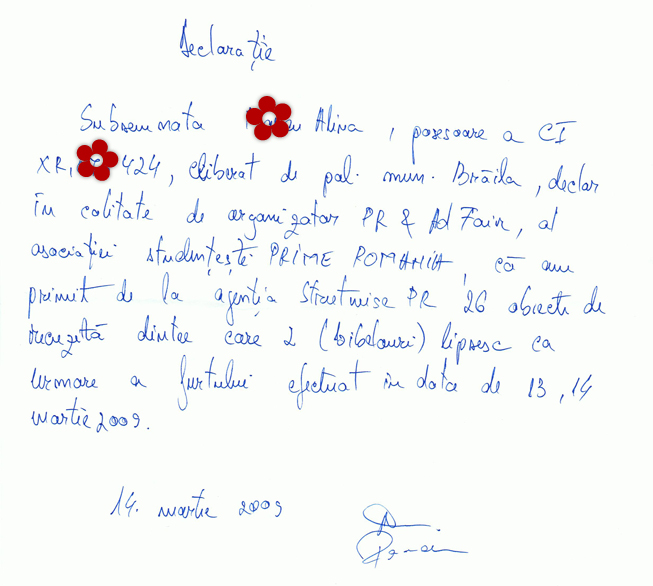 Declarație
Subsemnata Alina, posesoare a CI
XR, 424, eliberat de pol. mun. Brăila, declar
în calitate de organizator PR & Ad Fair, al
asociației studențești PRIME ROMANIA, că am
primit de la agenția Streetwise PR 26 obiecte de
recuzită dintre care 2 (bibelouri) lipsesc ca
urmare a furtului efectuat în data de 13, 14
martie 2009.
14. martie 2009